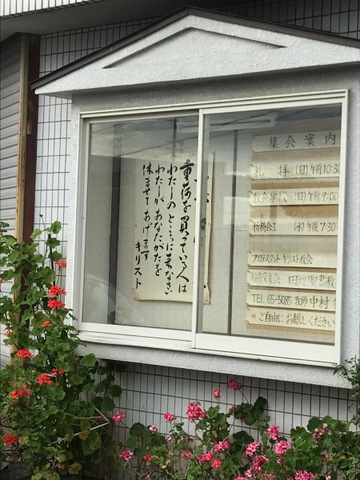 重荷を負ている人は
わたしのところに来なさい
わたしがあなたがたを
休ませてあげます
キリスト
集会案内
礼拝 (日) 午前10:30
教会学校 (日) 午前9:00
祈祷会 (水) 午後7:30
プロテスタント キリスト教会
TEL 65-5085 牧師 中村
＊ご自由にお越しください